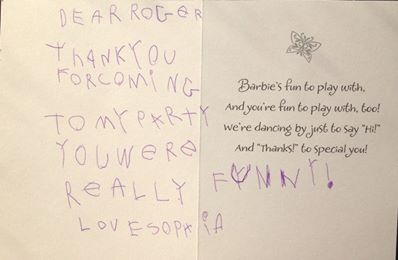 DEAR ROGER
THANK YOU
FOR COMING
TO MY PARTY
YOU WERE
REALLY FUNNY!
LOVE SOPHIA
Barbie's fun to play with,
And you're fun to play with, too!
We're dancing by just to say "Hi!"
And "Thanks!" to special you!